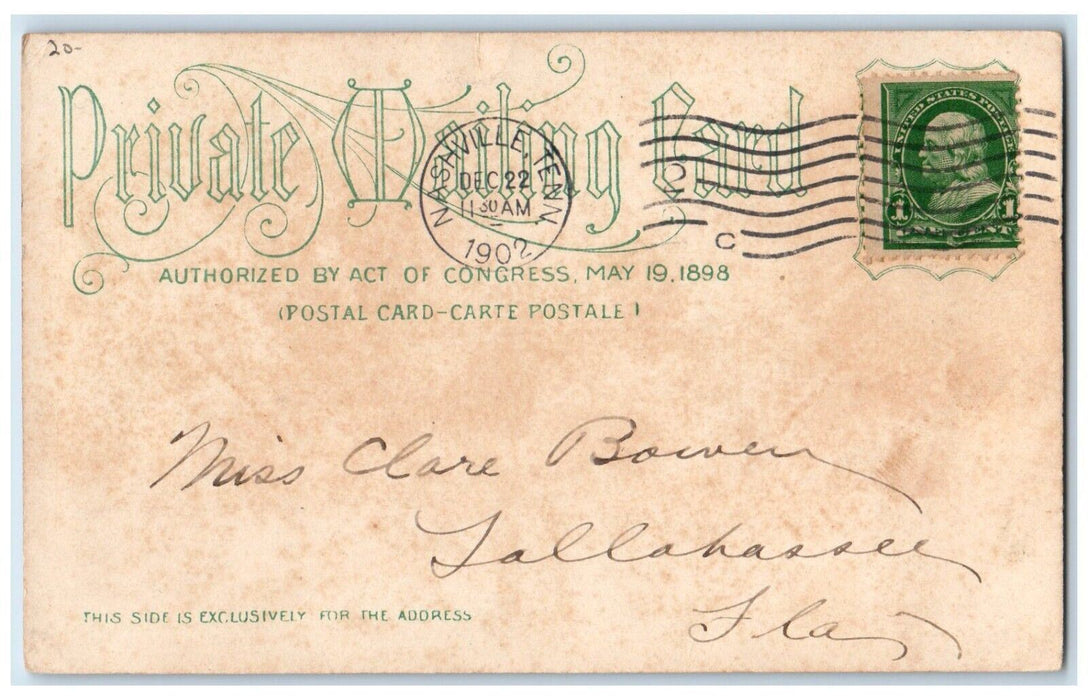 20-
Private Mailing Card
NASHVILLE, TENN.
DEC 22
11 30 AM
1902
C
UNITED STATES POSTAGE
1 1
ONE CENT
AUTHORIZED BY ACT OF CONGRESS, MAY 19, 1898
(POSTAL CARD-CARTE POSTALE)
Miss Clare Bowen
Tallahassee
Fla
THIS SIDE IS EXCLUSIVELY FOR THE ADDRESS